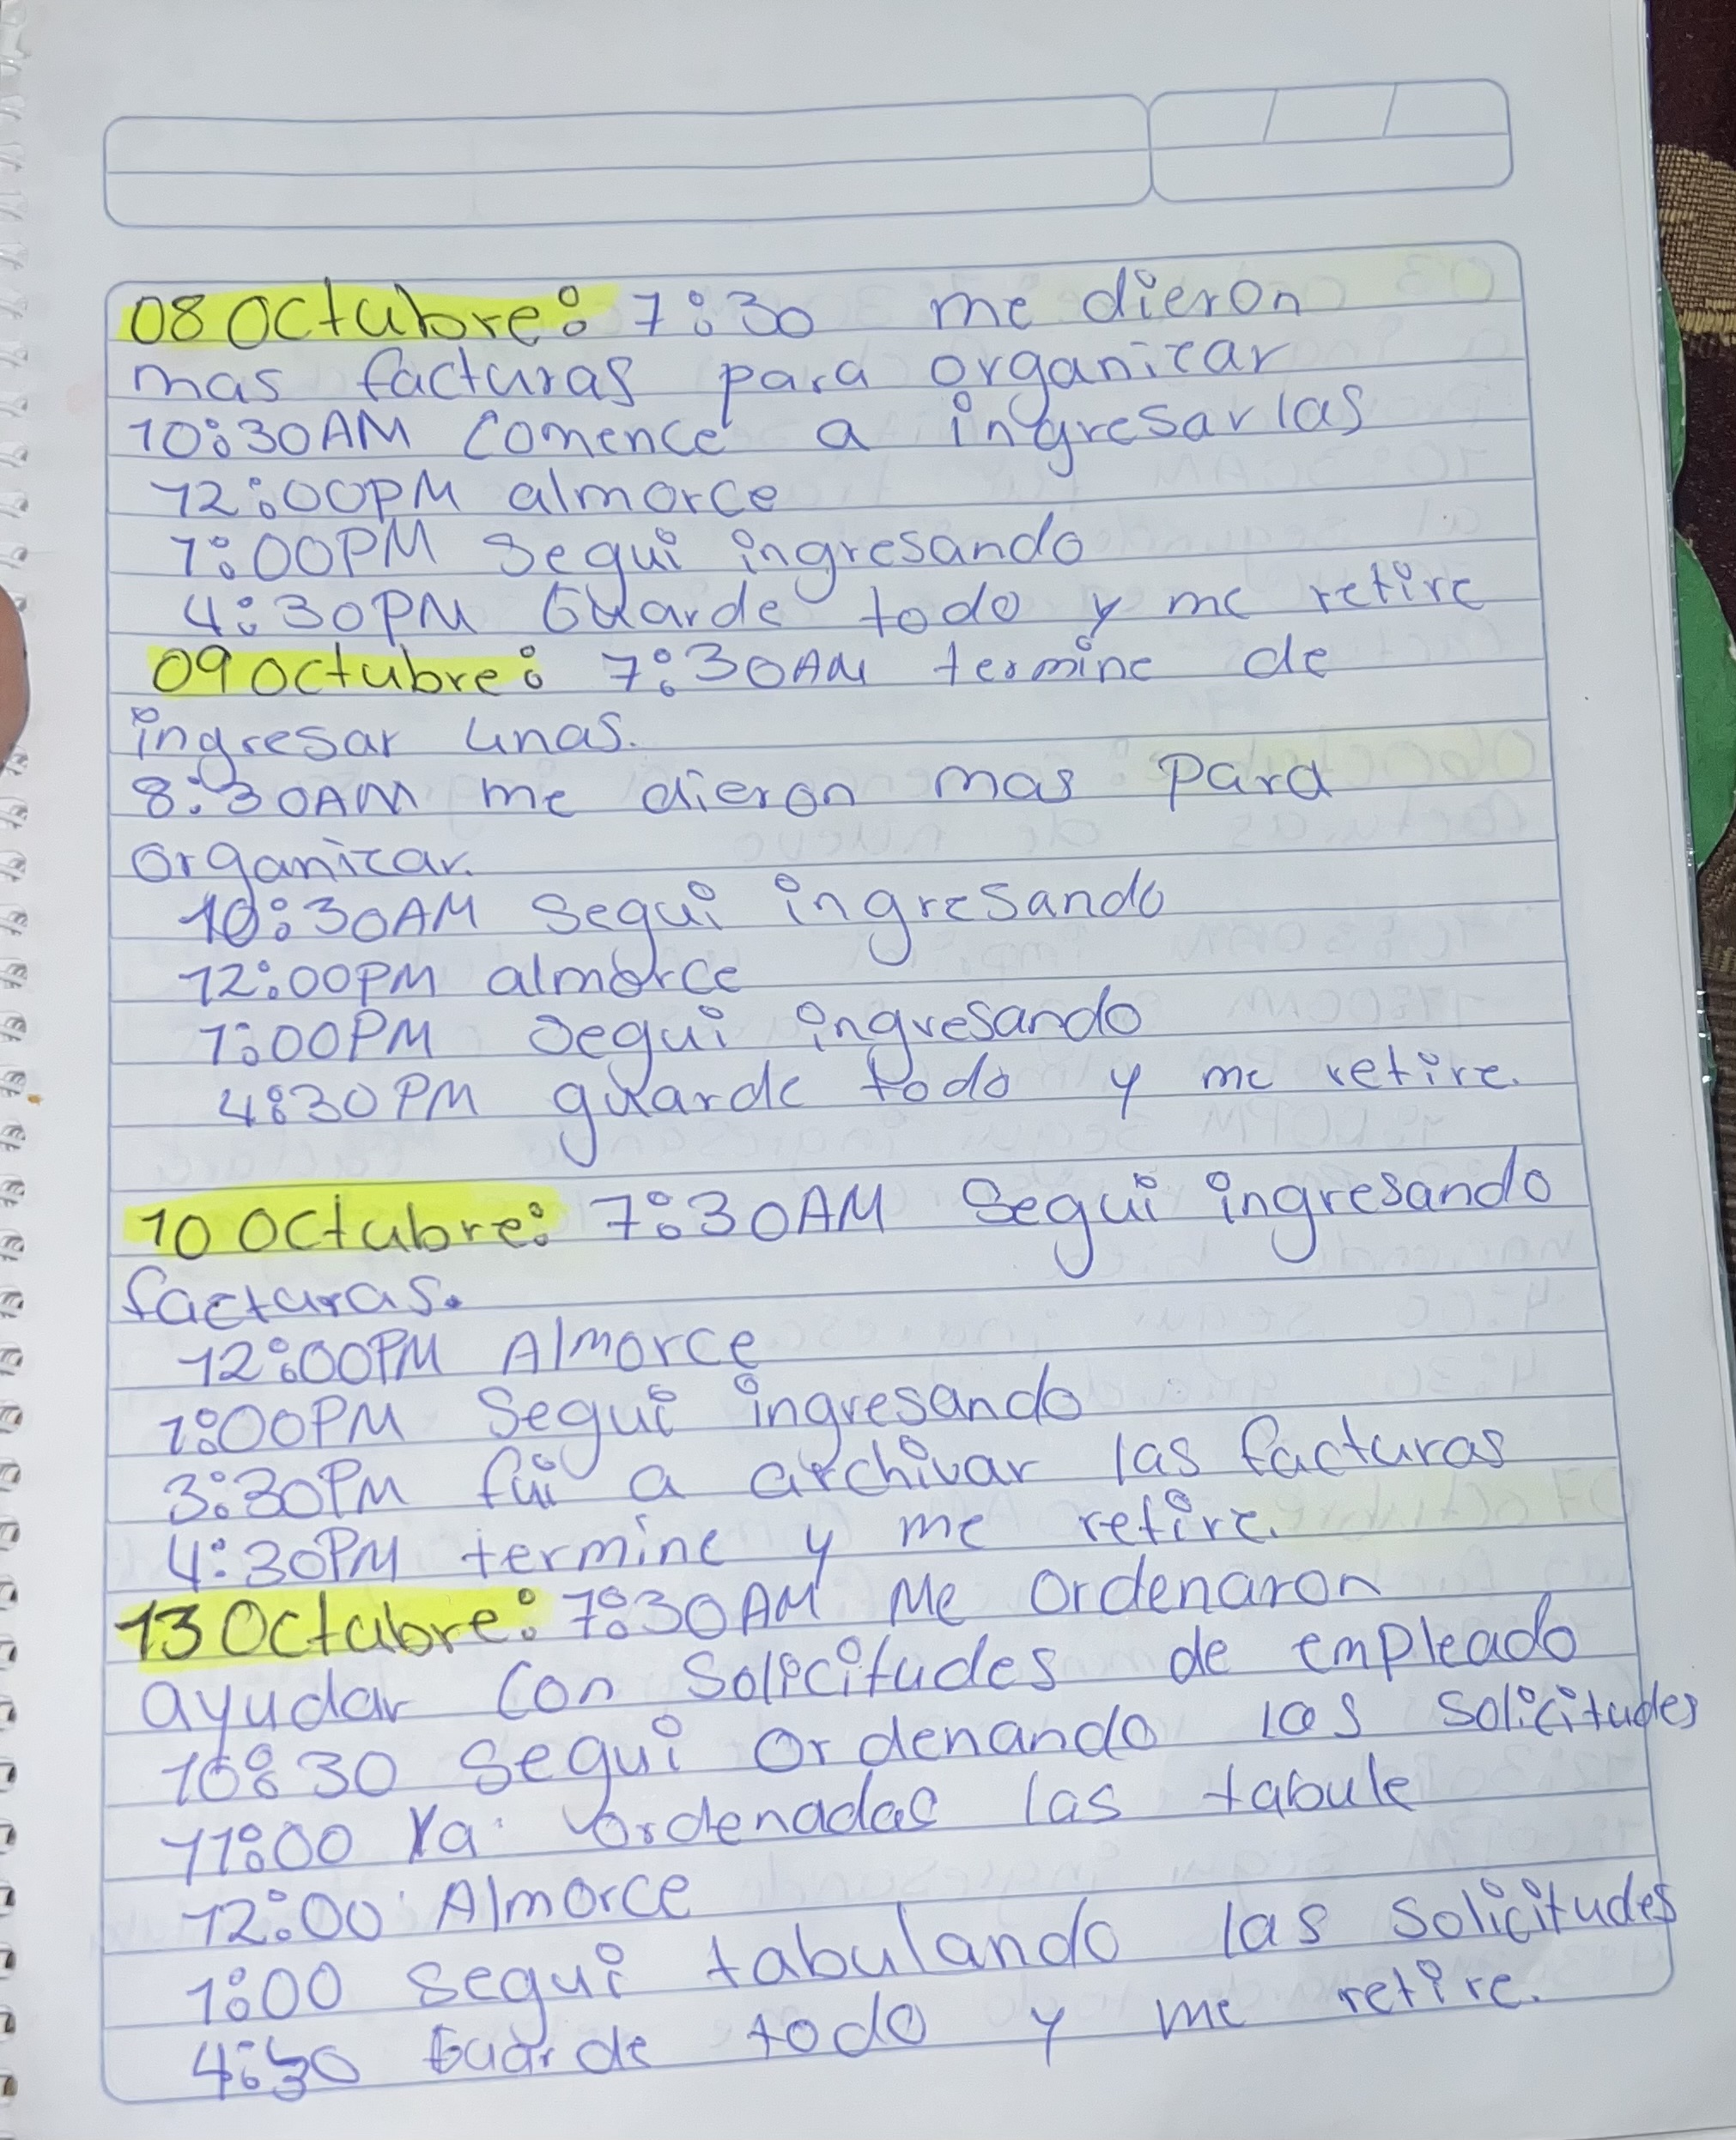 08 Octubre: 7:30 me dieron
mas facturas para organizar
10:30AM Comence a ingresarlas
12:00PM almorce
1:00PM Segui ingresando
4:30PM Guarde todo y me retire
09 Octubre: 7:30AM termine de
ingresar unas.
8:30AM me dieron mas para
organizar.
10:30AM Segui ingresando
12:00PM almorce
1:00PM Segui ingresando
4:30PM guarde todo y me retire.
10 Octubre: 7:30AM Segui ingresando
facturas.
12:00PM Almorce
1:00PM Segui ingresando
3:30PM fui a archivar las facturas
4:30PM termine y me retire.
13 Octubre: 7:30AM Me Ordenaron
ayudar Con Solicitudes de empleado
10:30 Segui Ordenando las Solicitudes
11:00 Ya ordenadas las tabule
12:00 Almorce
1:00 Segui tabulando las Solicitudes
4:30 Guarde todo y me retire.